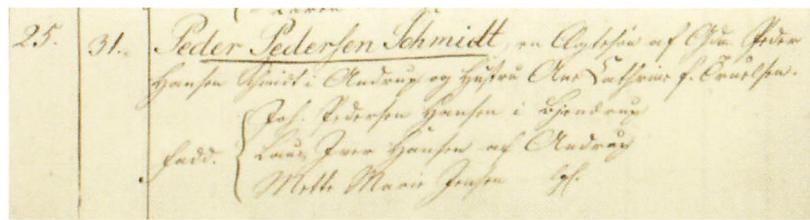 25. 31. Peder Pedersen Schmidt, en Ægtesøn af Gm. Peder
Hansen Schmidt i Andrup og Hustru Ane Cathrine f. Truelsen.
Joh. Pedersen Hansen i Bjendrup
Fadd. Laus Iver Hansen af Andrup
Mette Marie Jensen